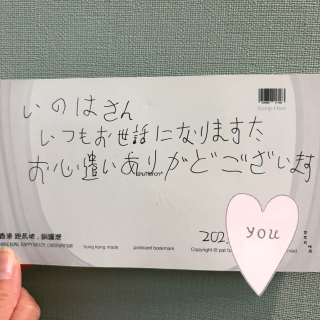 Stamp Here
いのはさん
いつもお世話になりますた
お心遣いありがどございます
香港 跑馬地．銅鑼灣
HONG KONG, HAPPY VALLEY, CAUSEWAY BAY
hong kong made
postcard bookmark
202
Copyright © pat
you